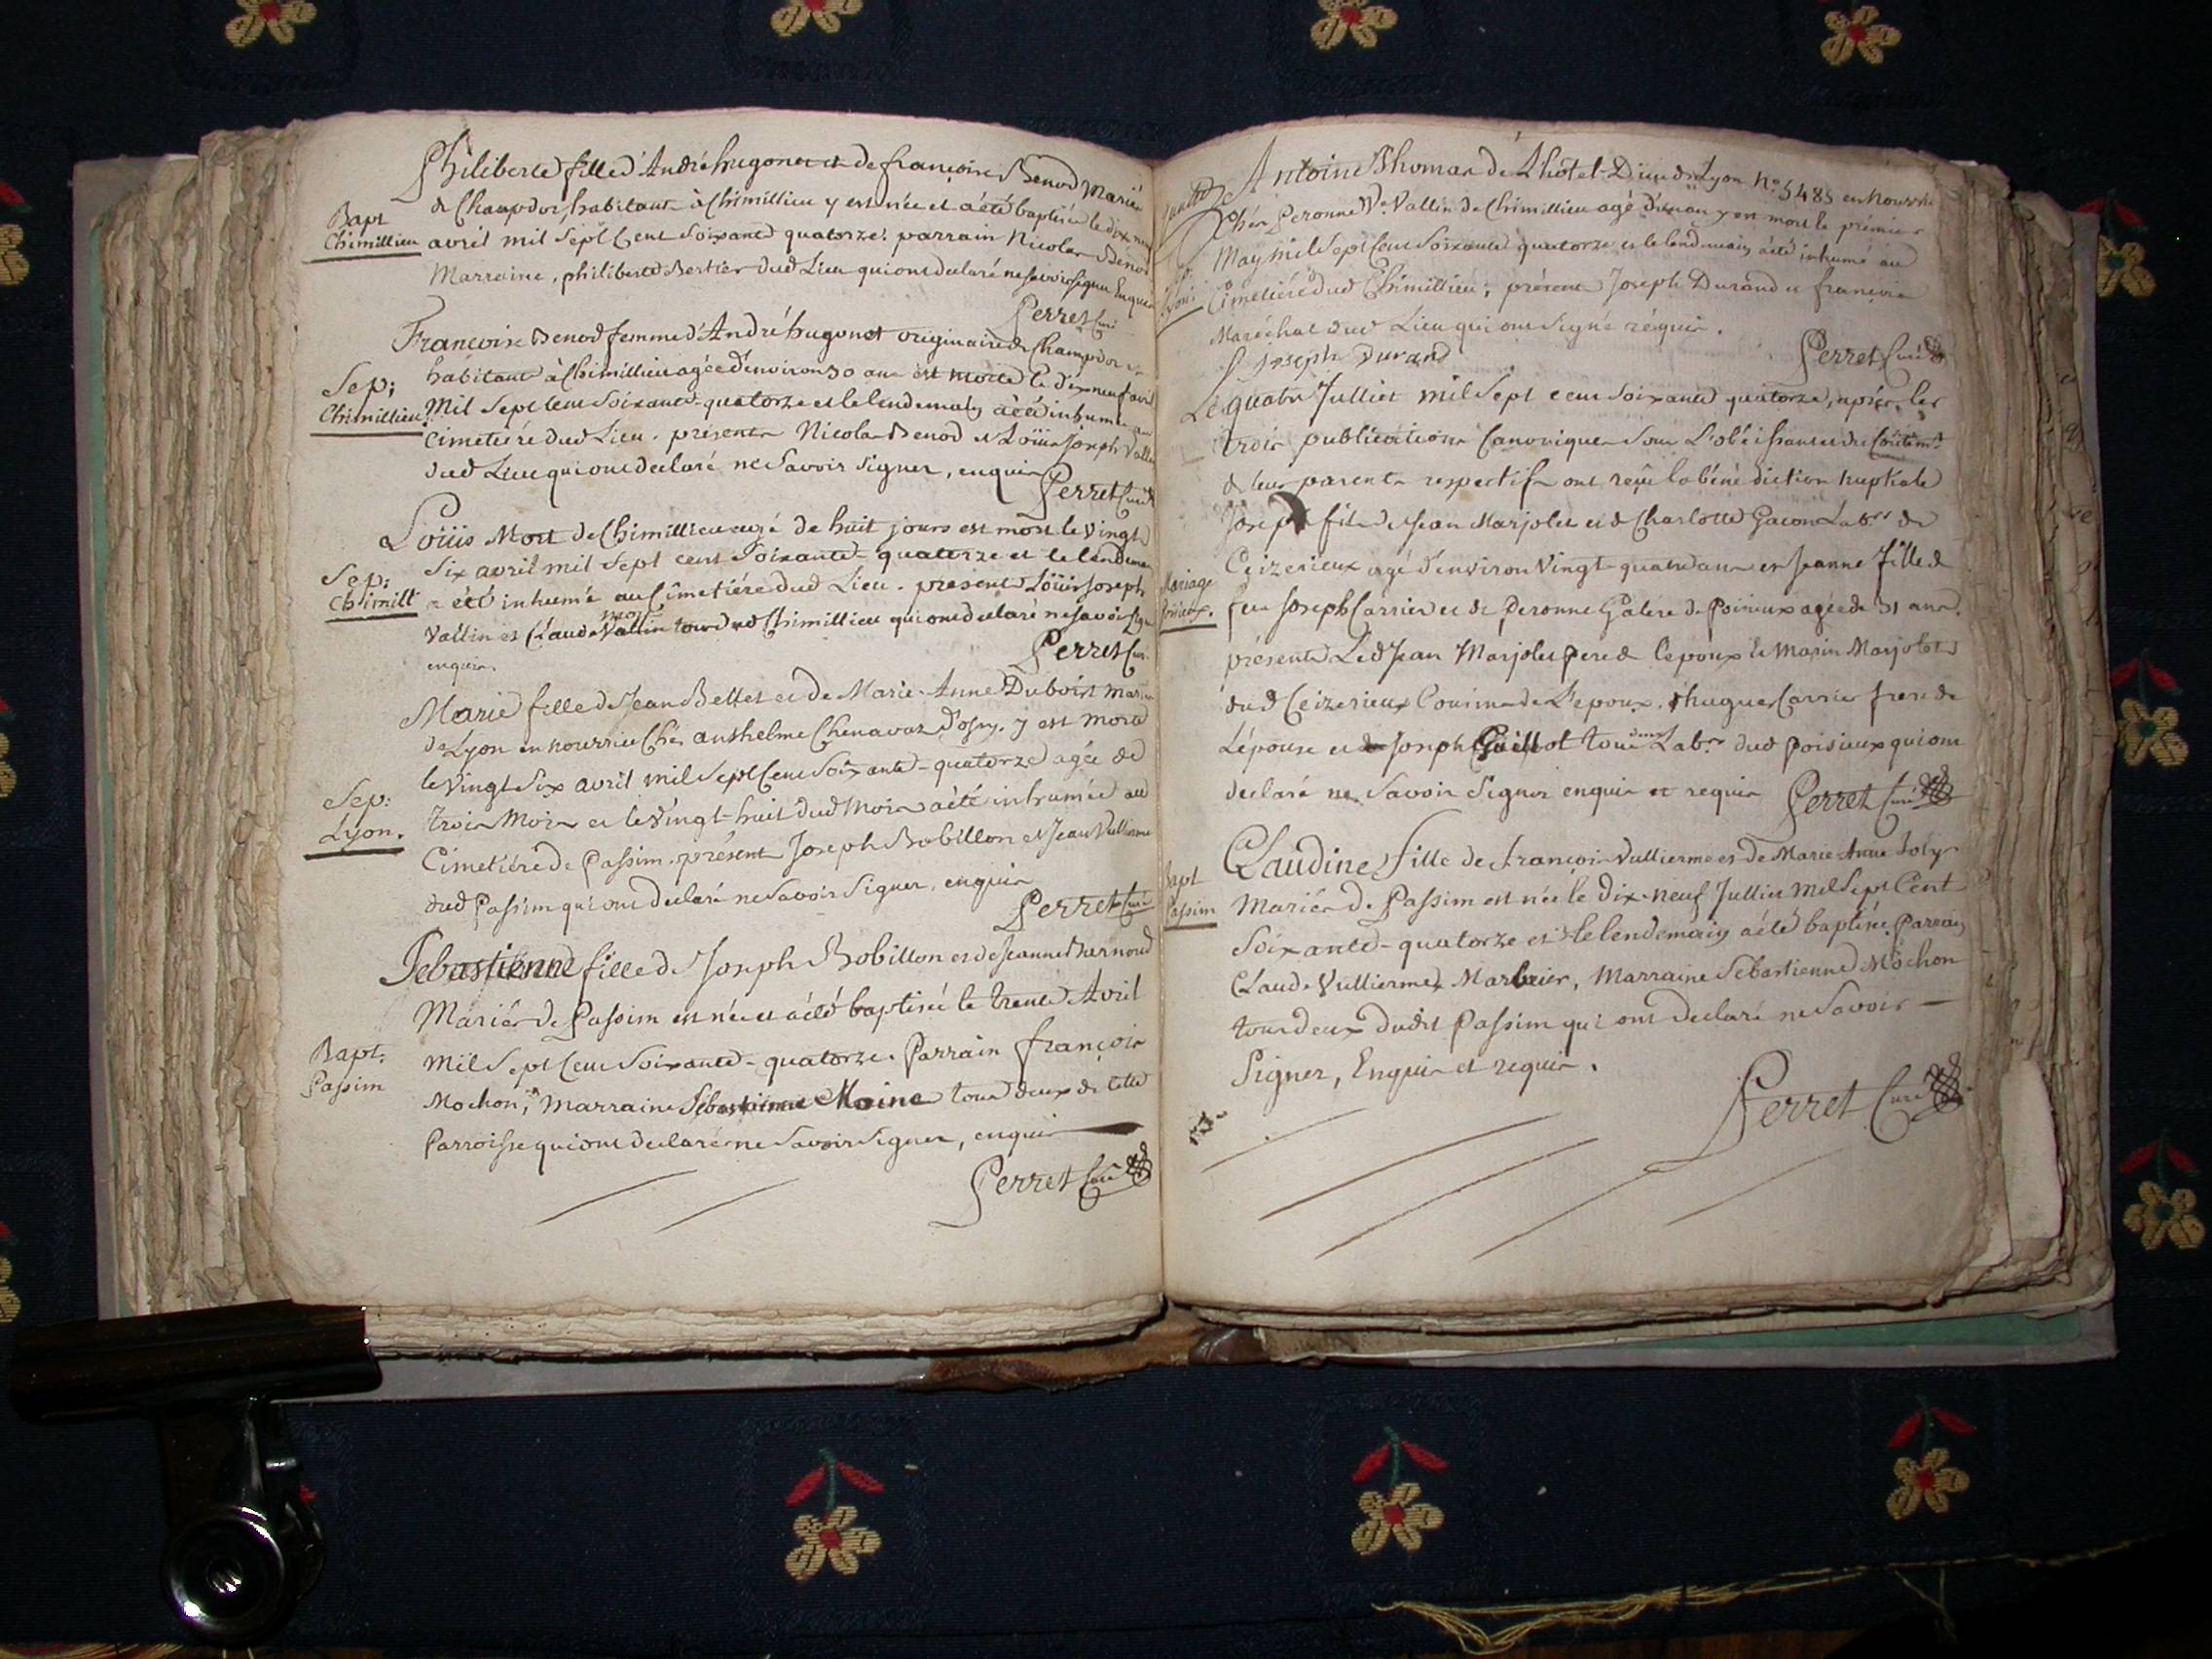 Philiberte fille d'André hugonet et de françoise Benod Mariés
de Champdor habitant à Chimillieu y est née et a été baptisée le dix neuf
Bapt
Chimillieu
avril mil Sept Cent Soixante quatorze. parrain Nicolas Benod
Marraine, philiberte Bertier dud Lieu qui ont declaré ne savoir signer Enquis
Perret Curé
Francoise Benod femme d'André hugonet originaire de Champdor et
habitant à Chimillieu agée d'environ 30 ans est morte le dix neuf avril
Sep;
Chimillieu
Mil Sept Cent Soixante-quatorze et le lendemain a été inhumée au
Cimetiére dud Lieu. présents Nicolas Benod et Loüis Joseph Vallin
dud Lieu qui ont declaré ne Savoir signer, enquis
Perret Curé
Loüis Mort de Chimillieu agé de huit jours est mort le vingt
Six avril mil Sept cent Soixante-quatorze et le lendemain
Sep;
Chimill
a été inhumé au Cimetiére dud Lieu. présents Loüis Joseph
mort
Vallin et Claude Vallin tous dud Chimillieu qui ont declaré ne savoir signer
enquis.
Perret Cur.
Marie fille de Jean Bellet et de Marie-Anne Dubois mariés
de Lyon en nourrice Chés anthelme Chenavaz d'ofin. y est morte
le vingt Six avril mil Sept Cent Soixante-quatorze agée de
Sep:
Lyon.
trois Mois et le vingt-huit dud Mois a été inhumée au
Cimetiére de Passim. présents Joseph Bobillon et Jean Vullierme
dud Passim qui ont declaré ne Savoir Signer, enquis
Perret Curé
Sebastienne fille de Joseph Bobillon et de Jeanne Barnoud
Mariés de Passim est née et a été baptisée le trente Avril
Bapt:
Passim
Mil Sept Cent Soixante-quatorze. Parrain françois
Mochon, Marraine Sébastienne Moine tous deux de cette
Parroisse qui ont declaré ne Savoir signer, enquis
Perret Curé
Antoine Thomas de L'hôtel-Dieu de Lyon N.° 5485 en Nourrice
Chés Peronne V.e Vallin de Chimillieu agé d'un an y est mort le prémier
May mil Sept Cent Soixante quatorze et le lendemain a été inhumé au
Cimetiére dud Chimillieu; présents Joseph Durand et françois
Maréchal dud Lieu qui ont Signé réquis.
Joseph Durand
Perret Curé
Le quatre Julliet mil Sept cent soixante quatorze, après les
trois publications Canoniques Sous L'obéissance et du
de leurs parents respectifs ont reçu la bénédiction nuptiale
Joseph fils de Jean Marjolet et de Charlotte Gacon Lab.rs de
Ceizerieux agé d'environ vingt-quatre ans et Jeanne fille de
Mariage
feu Joseph Carrier et de Peronne Galere de Poisieux agée de 31 ans.
présents Led Jean Marjolet pere de l'epoux le Marin Marjolet
dud Ceizerieux Cousin de L'epoux, hugues Carrier frere de
L'épouse et Joseph Guillot tous Lab.rs dud poisieux qui ont
declaré ne Savoir Signer enquis et requis
Perret Curé
Claudine fille de françois Vullierme et de Marie-Anne Joly
Bapt
Passim
Mariés de Passim est née le dix-neuf Julliet Mil Sept Cent
Soixante-quatorze et le lendemain a été baptisée. Parrain
Claude Vullierme, Marraine Sebastienne Mochon
tous deux dudit Passim qui ont declaré ne Savoir
Signer, Enquis et requis.
Perret Curé